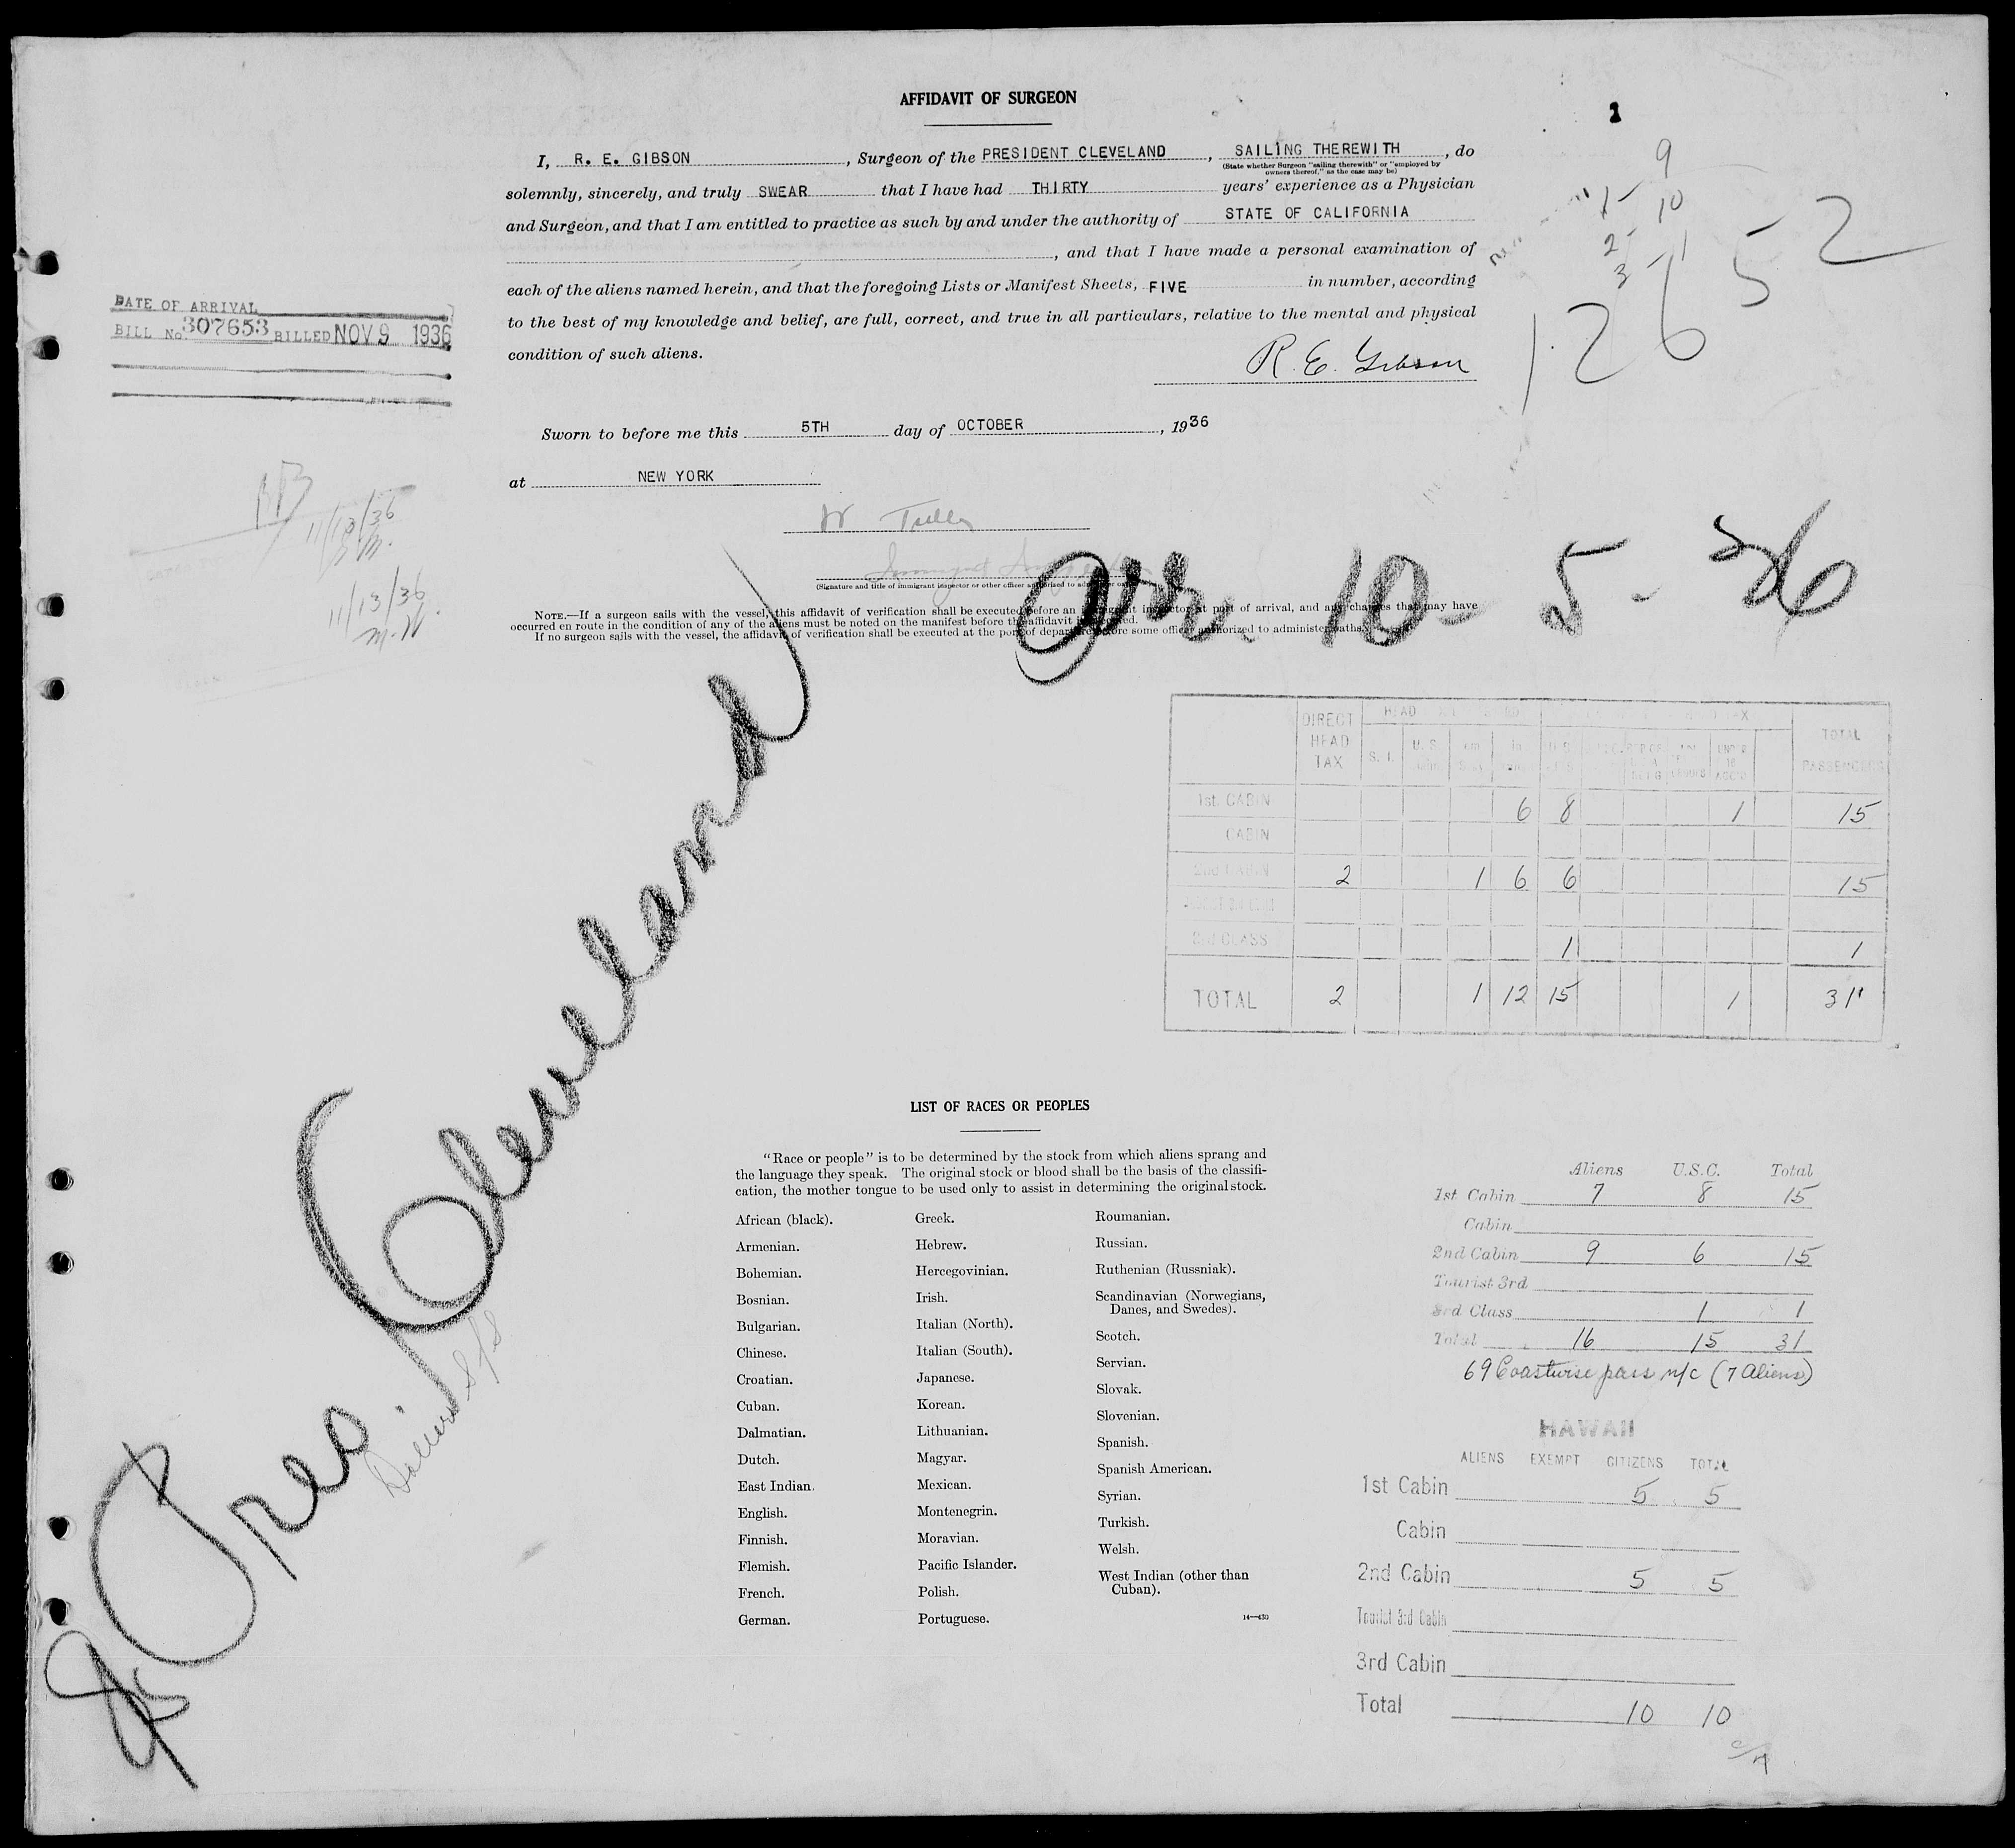 AFFIDAVIT OF SURGEON
I, R. E. GIBSON, Surgeon of the PRESIDENT CLEVELAND, SAILING THEREWITH, do
(State whether Surgeon "sailing therewith" or "employed by
owners thereof," as the case may be)
solemnly, sincerely, and truly SWEAR that I have had THIRTY years' experience as a Physician
and Surgeon, and that I am entitled to practice as such by and under the authority of STATE OF CALIFORNIA
, and that I have made a personal examination of
each of the aliens named herein, and that the foregoing Lists or Manifest Sheets, FIVE in number, according
to the best of my knowledge and belief, are full, correct, and true in all particulars, relative to the mental and physical
condition of such aliens.
R. E. Gibson
Sworn to before me this 5TH day of OCTOBER, 1936
at NEW YORK
(Signature and title of immigrant inspector or other officer authorized to administer oaths)
NOTE.—If a surgeon sails with the vessel, this affidavit of verification shall be executed before an immigrant inspector at port of arrival, and any changes that may have
occurred en route in the condition of any of the aliens must be noted on the manifest before the affidavit is executed.
If no surgeon sails with the vessel, the affidavit of verification shall be executed at the port of departure before some officer authorized to administer oaths.
1
9
1- 10
2-
3-1
12652
DATE OF ARRIVAL
BILL No. 307653 BILLED NOV 9 1936
11/13/36
11/13/36
M.W.
Arr. 10-5-36
SS Pres. Cleveland
DIRECT HEAD TAX
TOTAL PASSENGERS
S. I. U. S. UNDER 16
1st. CABIN 6 8 1 15
CABIN
2nd CABIN 2 1 6 6 15
3rd CLASS 1 1
TOTAL 2 1 12 15 1 31
LIST OF RACES OR PEOPLES
"Race or people" is to be determined by the stock from which aliens sprang and
the language they speak. The original stock or blood shall be the basis of the classifi-
cation, the mother tongue to be used only to assist in determining the original stock.
African (black).
Armenian.
Bohemian.
Bosnian.
Bulgarian.
Chinese.
Croatian.
Cuban.
Dalmatian.
Dutch.
East Indian.
English.
Finnish.
Flemish.
French.
German.
Greek.
Hebrew.
Hercegovinian.
Irish.
Italian (North).
Italian (South).
Japanese.
Korean.
Lithuanian.
Magyar.
Mexican.
Montenegrin.
Moravian.
Pacific Islander.
Polish.
Portuguese.
Roumanian.
Russian.
Ruthenian (Russniak).
Scandinavian (Norwegians,
Danes, and Swedes).
Scotch.
Servian.
Slovak.
Slovenian.
Spanish.
Spanish American.
Syrian.
Turkish.
Welsh.
West Indian (other than
Cuban).
14—430
Aliens U.S.C. Total
1st Cabin 7 8 15
Cabin
2nd Cabin 9 6 15
Tourist 3rd
3rd Class 1 1
Total 16 15 31
69 Coastwise pass n/c (7 Aliens)
HAWAII
ALIENS EXEMPT CITIZENS TOTAL
1st Cabin 5 5
Cabin
2nd Cabin 5 5
Tourist 3rd Cabin
3rd Cabin
Total 10 10